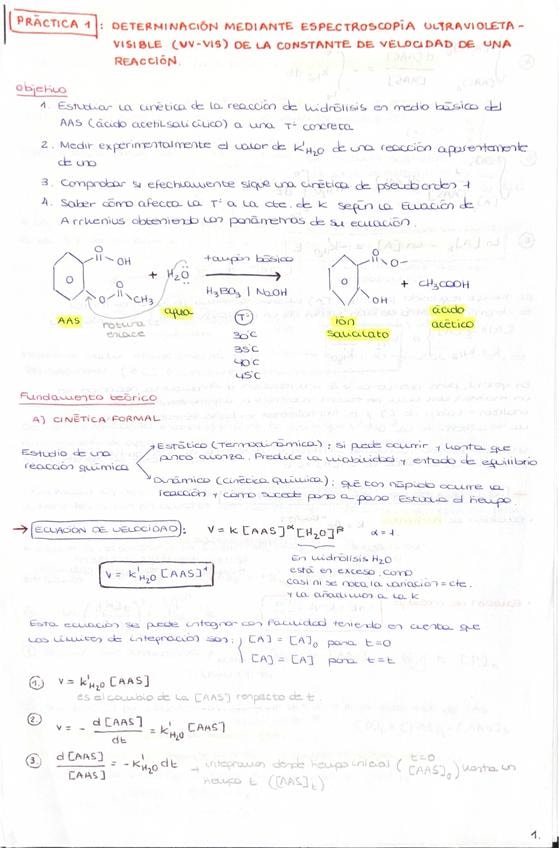 PRÁCTICA 1: DETERMINACIÓN MEDIANTE ESPECTROSCOPÍA ULTRAVIOLETA-
VISIBLE (UV-VIS) DE LA CONSTANTE DE VELOCIDAD DE UNA
REACCIÓN.
Objetivo
1. Estudiar la cinética de la reacción de hidrólisis en medio básico del
AAS (ácido acetilsalicílico) a una Tª concreta
2. Medir experimentalmente el valor de k'H₂O de una reacción aparentemente
de uno
3. Comprobar si efectivamente sigue una cinética de pseudoorden 1
4. Saber cómo afecta la Tª a la cte. de k según la Ecuación de
Arrhenius obteniendo los parámetros de su ecuación.
O OH + H₂O tampón básico O O- + CH₃COOH
O O CH₃ H₃BO₃ | NaOH OH
AAS rotura enlace agua Tª ión salicilato ácido acético
30°C
35°C
40°C
45°C
Fundamento teórico
A) CINÉTICA FORMAL
Estudio de una reacción química
Estático (Termodinámica): si puede ocurrir y hasta que
punto avanza. Predice la viabilidad y estado de equilibrio
Dinámico (Cinética Química): qué tan rápido ocurre la
reacción y cómo sucede paso a paso. Estudia el tiempo.
→ ECUACIÓN DE VELOCIDAD: V = K [AAS]^α [H₂O]^β α = 1
V = k'H₂O [AAS]¹
En hidrólisis H₂O
está en exceso, como
casi ni se nota la variación = cte.
y la añadimos a la k
Esta ecuación se puede integrar con facilidad teniendo en cuenta que
los límites de integración son: [A] = [A]₀ para t=0
[A] = [A] para t=t
1. V = k'H₂O [AAS]
es el cambio de la [AAS] respecto de t.
2. V = - d[AAS]/dt = k'H₂O [AAS]
3. d[AAS]/[AAS] = -k'H₂O dt → integramos desde tiempo inicial (t=0 [AAS]₀) hasta un
tiempo t ([AAS]t)
1.